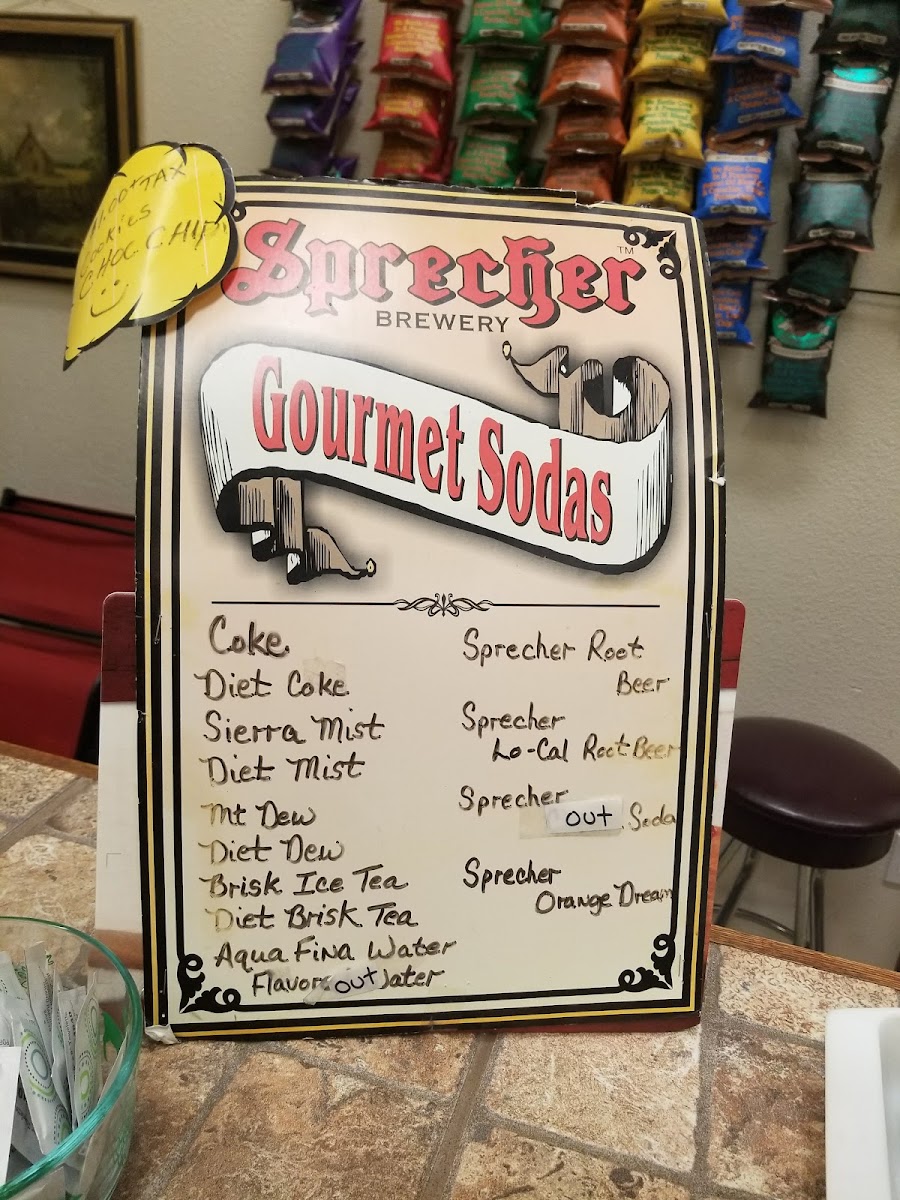 1.00 + TAX
Cookies
CHOC CHIP
Sprecher™
BREWERY
Gourmet Sodas
Coke
Diet Coke
Sierra Mist
Diet Mist
Mt Dew
Diet Dew
Brisk Ice Tea
Diet Brisk Tea
Aqua Fina Water
Flavor out Water
Sprecher Root
Beer
Sprecher
Lo-Cal Root Beer
Sprecher
out Soda
Sprecher
Orange Dream